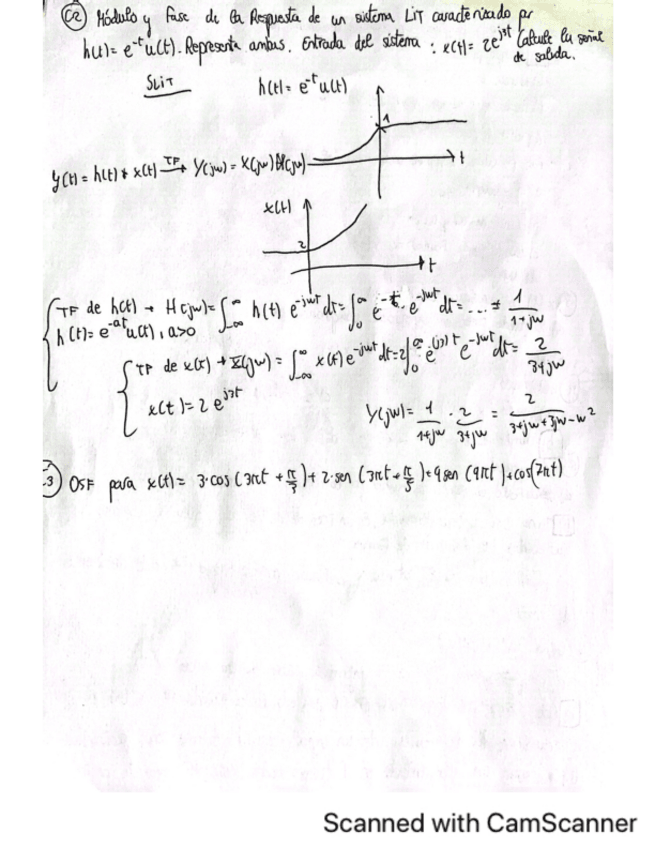 C2 Módulo y Fase de la Respuesta de un sistema LiT caracterizado por
h(t) = e^-t u(t). Representa ambas. Entrada del sistema : x(t) = 2e^j3t Calcule la señal
de salida.
SLiT
h(t) = e^-t u(t)
1
t
y(t) = h(t) * x(t) TF→ Y(jw) = X(jw) H(jw)
x(t)
2
t
TF de h(t) → H(jw) = ∫_-∞^∞ h(t) e^-jwt dt = ∫_0^∞ e^-t · e^-jwt dt = ... = 1/(1+jw)
h(t) = e^-at u(t), a>0
TF de x(t) → X(jw) = ∫_-∞^∞ x(t) e^-jwt dt = 2∫_0^∞ e^(j3)t e^-jwt dt = 2/(3+jw)
x(t) = 2 e^j3t
Y(jw) = 1/(1+jw) · 2/(3+jw) = 2/(3+jw+3jw-w²)
3 DSF para x(t) = 3·cos(3πt + π/3) + 2·sen(3πt + π/3) + 4sen(9πt) + cos(7πt)
Scanned with CamScanner